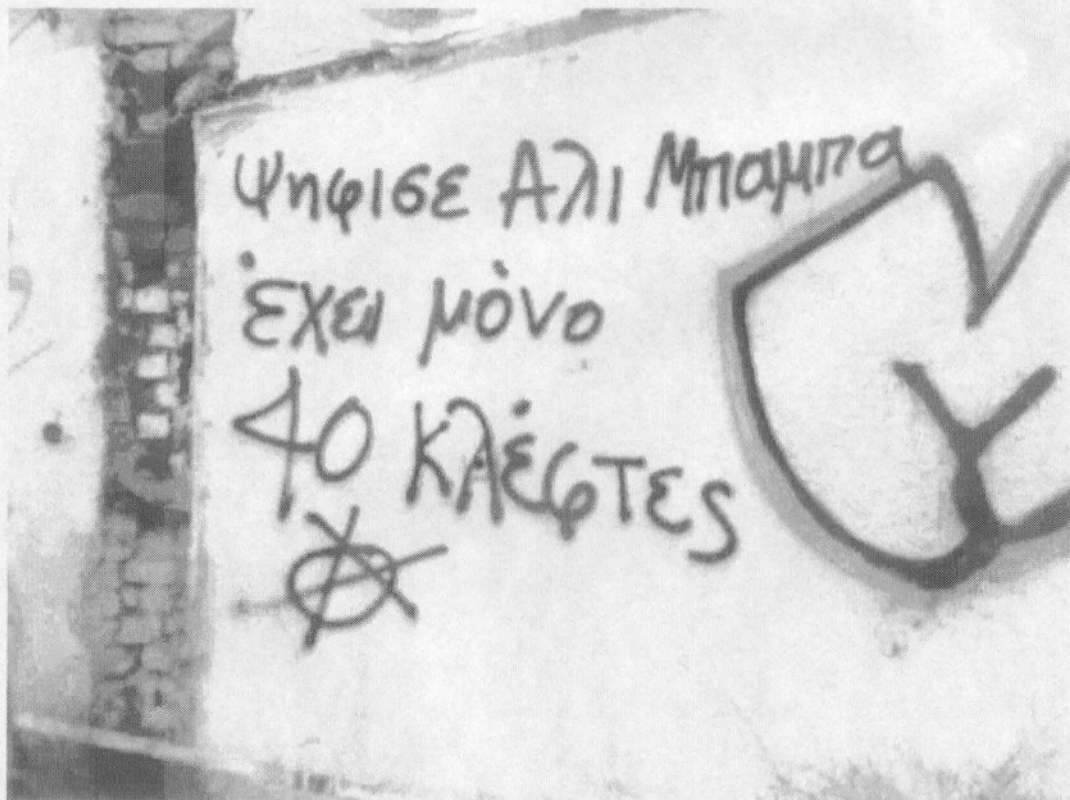 ψηφισε Αλι Μπαμπα
έχει μόνο
40 κλέφτες